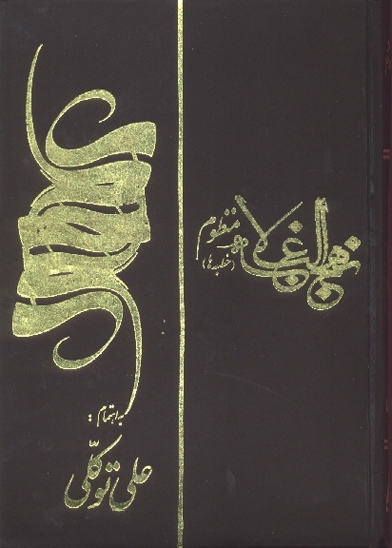 نهج البلاغه
منظوم
(خطبه ها)
به اهتمام:
علی توکّلی